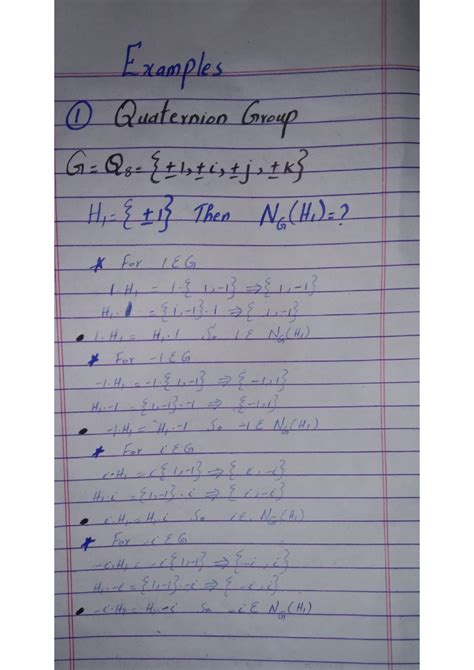 Examples
① Quaternion Group
G = Q₈ = {±1, ±i, ±j, ±k}
H₁ = {±1} Then N_G(H₁) = ?
* For 1 ∈ G
1·H₁ = 1·{1,-1} ⇒ {1,-1}
H₁·1 = {1,-1}·1 ⇒ {1,-1}
• 1·H₁ = H₁·1 So 1 ∈ N_G(H₁)
* For -1 ∈ G
-1·H₁ = -1·{1,-1} ⇒ {-1,1}
H₁·-1 = {1,-1}·-1 ⇒ {-1,1}
• -1·H₁ = H₁·-1 So -1 ∈ N_G(H₁)
* For i ∈ G
i·H₁ = i{1,-1} ⇒ {i,-i}
H₁·i = {1,-1}·i ⇒ {i,-i}
• i·H₁ = H₁·i So i ∈ N_G(H₁)
* For -i ∈ G
-i·H₁ = -i{1,-1} ⇒ {-i,i}
H₁·-i = {1,-1}·-i ⇒ {-i,i}
• -i·H₁ = H₁·-i So -i ∈ N_G(H₁)